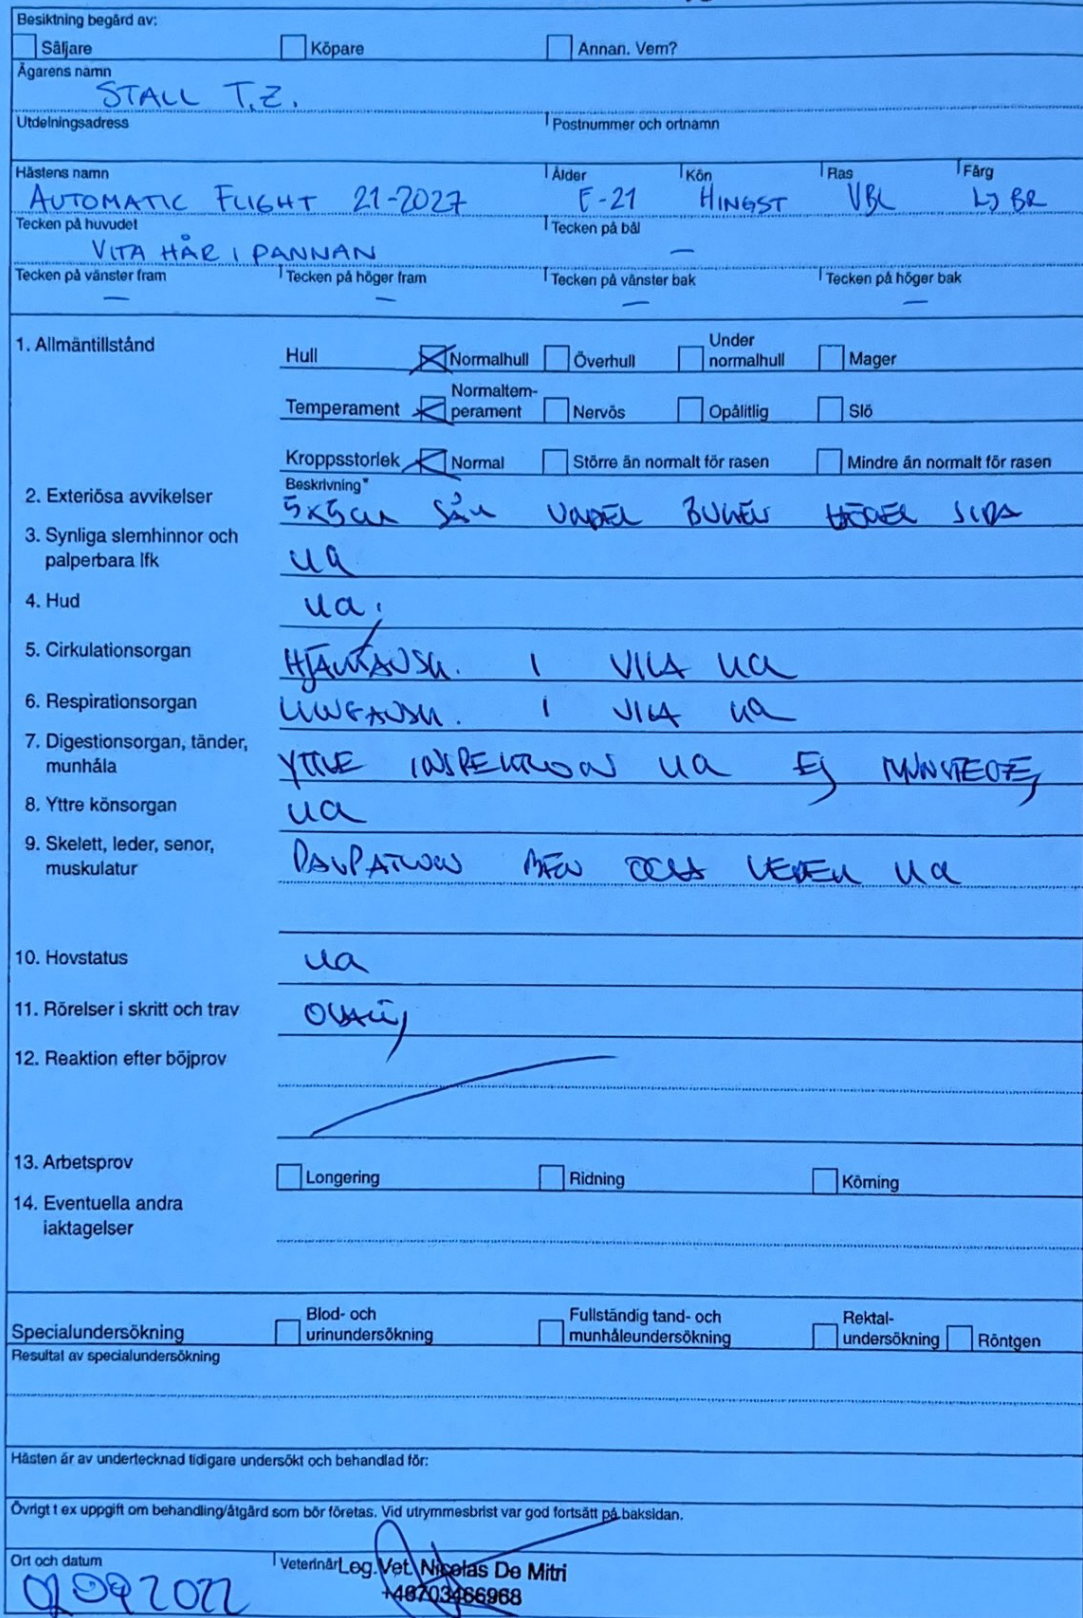 Besiktning begärd av:
Säljare Köpare Annan. Vem?
Ägarens namn
STALL T.Z.
Utdelningsadress Postnummer och ortnamn
Hästens namn Ålder Kön Ras Färg
AUTOMATIC FLIGHT 21-2027 E-21 HINGST VBL Lj BR
Tecken på huvudet Tecken på bål
VITA HÅR I PANNAN —
Tecken på vänster fram Tecken på höger fram Tecken på vänster bak Tecken på höger bak
— — — —
1. Allmäntillstånd Hull Normalhull Överhull Under normalhull Mager
Temperament Normaltem-perament Nervös Opålitlig Slö
Kroppsstorlek Normal Större än normalt för rasen Mindre än normalt för rasen
Beskrivning*
2. Exteriösa avvikelser 5x5cm SÅR UNDER BUKEN HÖGER SIDA
3. Synliga slemhinnor och
palperbara lfk ua
4. Hud ua.
5. Cirkulationsorgan HJÄRTAUSK. I VILA ua
6. Respirationsorgan LUNGAUSK. I VILA ua
7. Digestionsorgan, tänder,
munhåla YTTRE INSPEKTION ua Ej
8. Yttre könsorgan ua
9. Skelett, leder, senor,
muskulatur PALPATION BEN OCH LEDER ua
10. Hovstatus ua
11. Rörelser i skritt och trav
12. Reaktion efter böjprov
13. Arbetsprov Longering Ridning Körning
14. Eventuella andra
iaktagelser
Specialundersökning Blod- och urinundersökning Fullständig tand- och munhåleundersökning Rektal-undersökning Röntgen
Resultat av specialundersökning
Hästen är av undertecknad tidigare undersökt och behandlad för:
Övrigt t ex uppgift om behandling/åtgärd som bör företas. Vid utrymmesbrist var god fortsätt på baksidan.
Ort och datum Veterinär Leg. Vet. Nicolas De Mitri
+46703466968